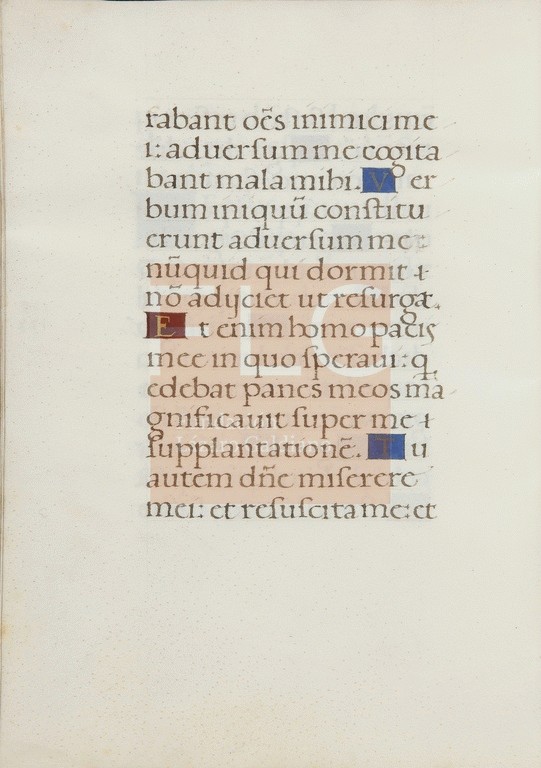 rabant oēs inimici me
i: aduersum me cogita
bant mala mihi. Ver
bum iniquū constitu
erunt aduersum me:
nūquid qui dormit
nō adijciet ut resurgat.
Et enim homo pacis
mee in quo speraui: q
edebat panes meos ma
gnificauit super me
supplantationē. Tu
autem dn̄e miserere
mei: et resuscita me: et
FLG